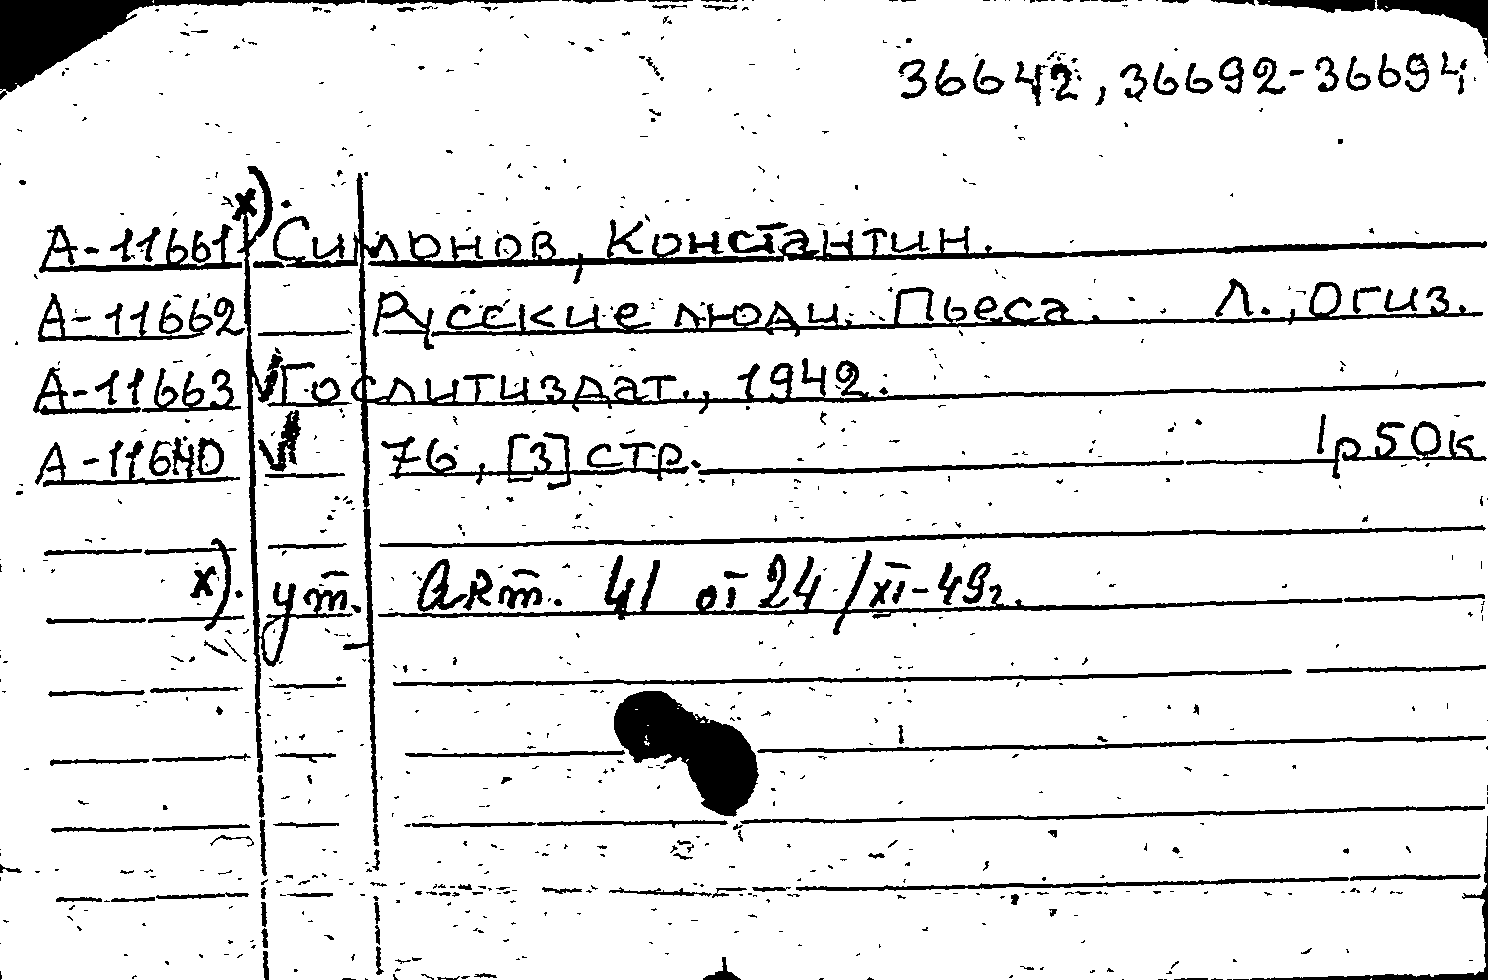 36642, 36692-36694
А-11661 х). Симонов, Константин.
А-11662 Русские люди. Пьеса. Л., Огиз.
А-11663 V Гослитиздат., 1942.
А-11640 V 76, [3] стр. 1р50к
х). ут. Акт. 41 от 24/XI-49г.